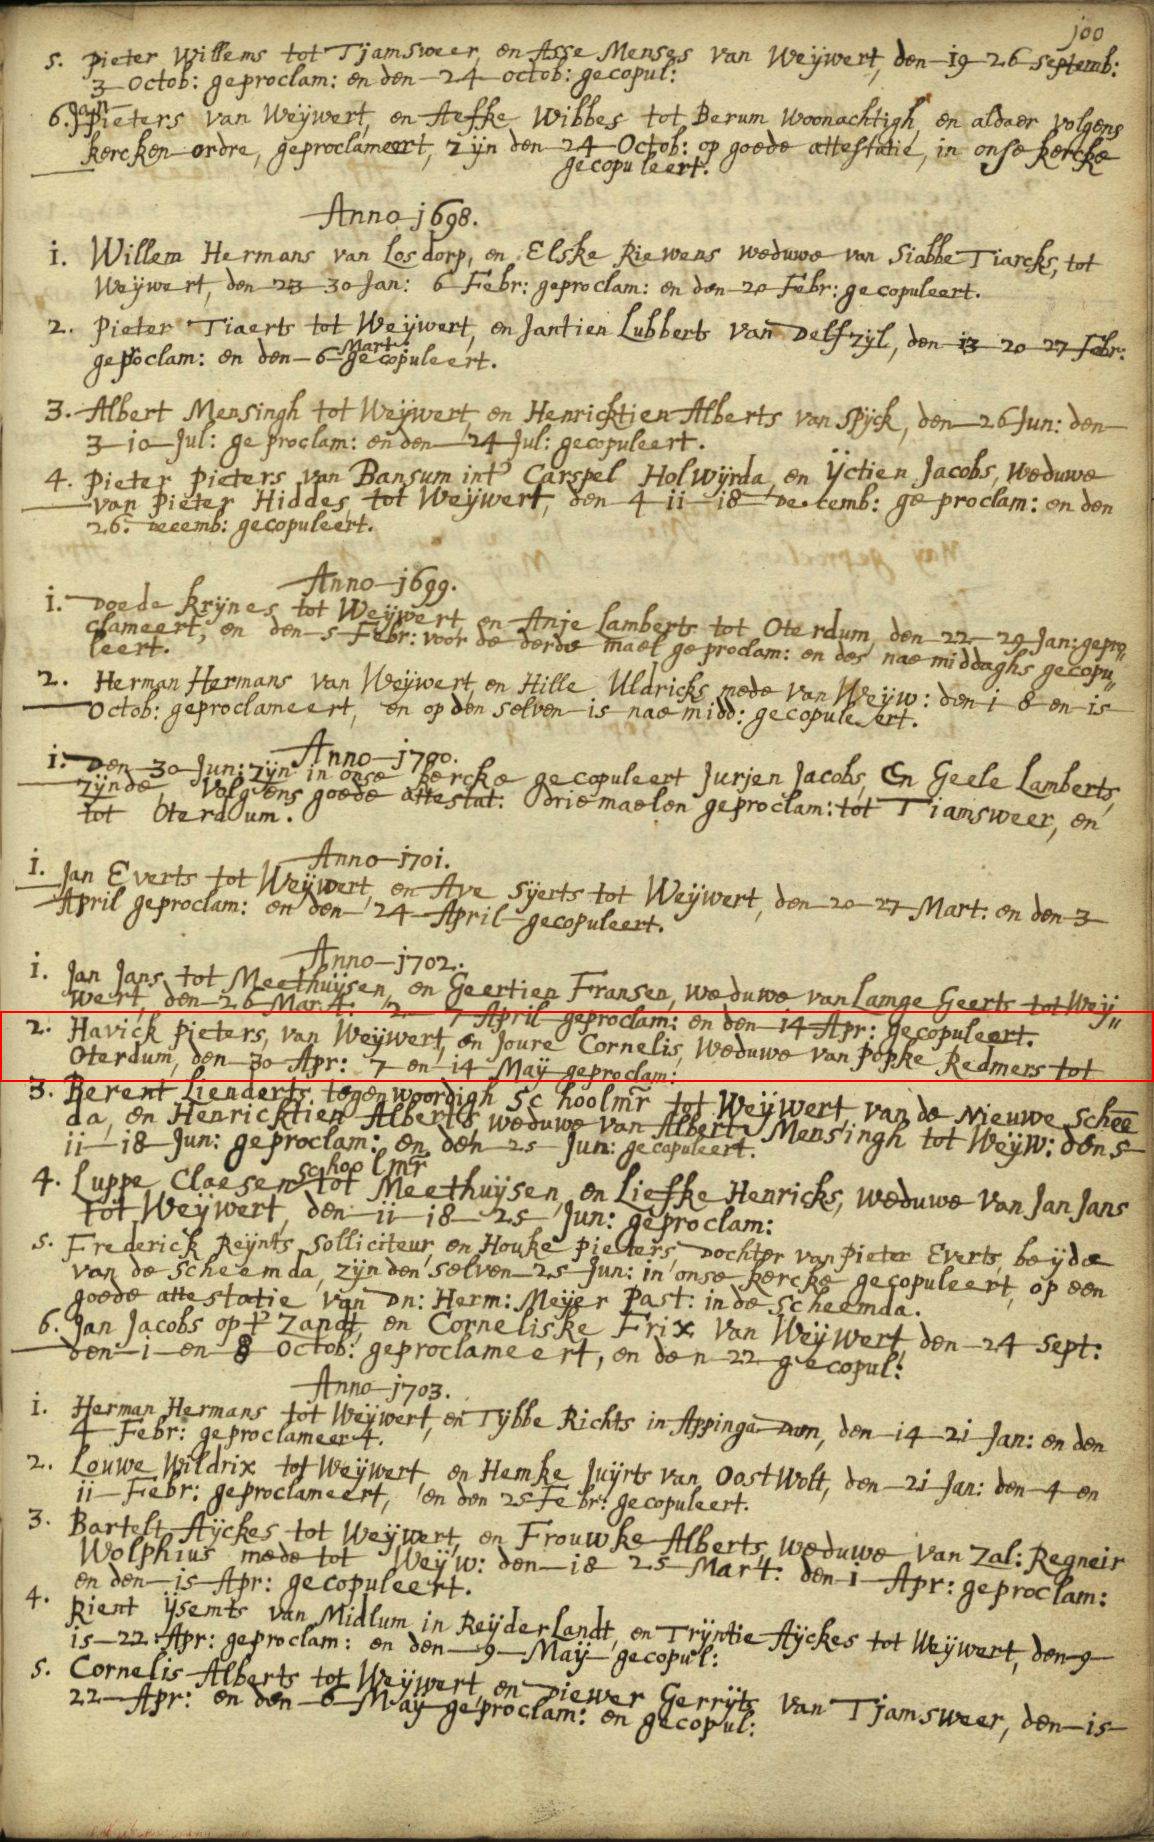 100
5. Pieter Willems tot Tjamsweer, en Asse Menses van Weÿwert, den 19 26 Septemb:
3 Octob: geproclam: en den 24 octob: gecopul:
6. Jan Pieters van Weÿwert, en Aefke Wibbes tot Berum woonachtigh, en aldaer volgens
kercken ordre, geproclameert, zÿn den 24 Octob: op goede attestatie, in onse kercke
gecopuleert.
Anno 1698.
1. Willem Hermans van Losdorp, en Elske Riewens weduwe van Siabbe Tiarcks, tot
Weÿwert, den 23 30 Jan: 6 Febr: geproclam: en den 20 Febr: gecopuleert.
2. Pieter Tiaerts tot Weÿwert, en Jantien Lubberts van Delfzÿl, den 13 20 27 Febr:
geproclam: en den 6 Mart: gecopuleert.
3. Albert Mensingh tot Weÿwert, en Henricktien Alberts van Spÿck, den 26 Jun: den
3 10 Jul: geproclam: en den 24 Jul: gecopuleert.
4. Pieter Pieters van Bansum int Carspel Holwÿrda, en Ÿctien Jacobs, weduwe
van Pieter Hiddes, tot Weÿwert, den 4 11 18 Decemb: geproclam: en den
26. Decemb: gecopuleert.
Anno 1699.
1. Doede Krÿnes tot Weÿwert, en Anje Lamberts tot Oterdum, den 22 29 Jan: gepro„
clameert, en den 5 Febr: voor de derde mael geproclam: en des nae middaghs gecopu„
leert.
2. Herman Hermans van Weÿwert, en Hille Uldricks mede van Weÿw: den 1 8 en 15
Octob: geproclameert, en op den selven 15 nae midd: gecopuleert.
Anno 1700.
1. Den 30 Jun: zÿn in onse kercke gecopuleert Jurjen Jacobs, En Geele Lamberts,
zÿnde volgens goede attestat: driemaelen geproclam: tot Tiamsweer, en
tot Oterdum.
Anno 1701.
1. Jan Everts tot Weÿwert, en Ave Sÿerts tot Weÿwert, den 20 27 Mart: en den 3
April geproclam: en den 24 April gecopuleert.
Anno 1702.
1. Jan Jans tot Meethuÿsen, en Geertien Fransen, weduwe van Lamge Geerts tot Weÿ„
wert, den 26 Mart: 2 7 April geproclam: en den 14 Apr: gecopuleert.
2. Havick Pieters, van Weÿwert, en Joure Cornelis, weduwe van Popke Redmers tot
Oterdum, den 30 Apr: 7 en 14 Maÿ geproclam:
3. Berent Lienderts tegenwoordigh Schoolmr tot Weÿwert van de Nieuwe Schee
da, en Henricktien Alberts, weduwe van Albert Mensingh tot Weÿw: den 5
11 18 Jun: geproclam: en den 25 Jun: gecopuleert.
4. Luppe Claesen schoolmr tot Meethuÿsen, en Liefke Henricks, weduwe van Jan Jans
tot Weÿwert, den 11 18 25 Jun: geproclam:
5. Frederick Reÿnts Solliciteur, en Houke Pieters, Dochter van Pieter Everts, beÿde
van de Scheemda, zÿn den selven 25 Jun: in onse kercke gecopuleert, op een
goede attestatie van Dn: Herm: Meÿer Past: in de Scheemda.
6. Jan Jacobs op t Zandt, en Corneliske Frix van Weÿwert, den 24 Sept:
den 1 en 8 Octob: geproclameert, en den 22 gecopul:
Anno 1703.
1. Herman Hermans tot Weÿwert, en Tÿbbe Richts in Appinga Dam, den 14 21 Jan: en den
4 Febr: geproclameert.
2. Louwe Wildrix tot Weÿwert, en Hemke Juÿrts van Oostwolt, den 21 Jan: den 4 en
11 Febr: geproclameert, en den 25 Febr: gecopuleert.
3. Bartelt Aÿckes tot Weÿwert, en Frouwke Alberts, weduwe van Zal: Regneir
Wolphius mede tot Weÿw: den 18 25 Mart: den 1 Apr: geproclam:
en den 15 Apr: gecopuleert.
4. Rient Ÿsemts van Midlum in Reÿderlandt, en Trÿntie Aÿckes tot Weÿwert, den 9
15 22 Apr: geproclam: en den 9 Maÿ gecopul:
5. Cornelis Alberts tot Weÿwert, en Diewer Gerrÿts van Tjamsweer, den 15
22 Apr: en den 6 Maÿ geproclam: en gecopul: